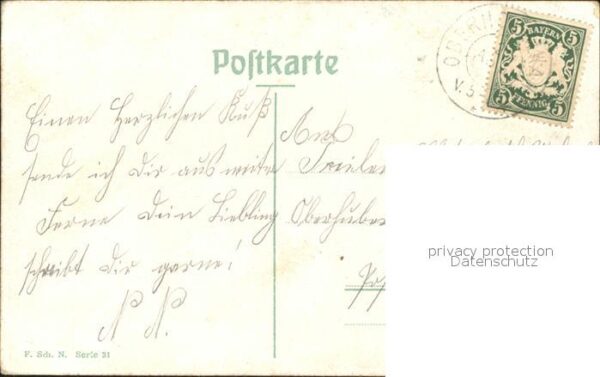 Postkarte
5 BAYERN 5
5 PFENNIG 5
Einen Herzlichen Kuß
sende ich Dir aus weiter
Ferne Dein Liebling
schreibt Dir gerne!
N N.
An
Oberhuber
privacy protection
Datenschutz
F. Sch. N. Serie 31